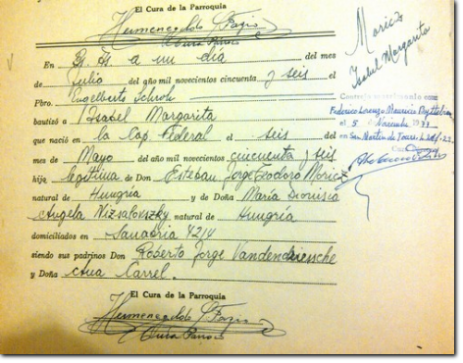 El Cura de la Parroquia
Hermenegildo
Cura Párroco
En Bs. As. a un día del mes
de Julio del año mil novecientos cincuenta y seis el
Pbro. Engelberto
bautizó a Isabel Margarita
que nació en la Cap. Federal el seis del
mes de Mayo del año mil novecientos cincuenta y seis
hija legítima de Don Esteban Jorge Teodoro Moricz
natural de Hungría y de Doña María Dionisia
Angela natural de Hungría
domiciliados en 4214
siendo sus padrinos Don Roberto Jorge
y Doña Ana Carrel.
El Cura de la Parroquia
Hermenegildo
Cura Párroco
Moricz
Isabel Margarita
Federico Lorenzo Mauricio
el 5
San Martin de Tours